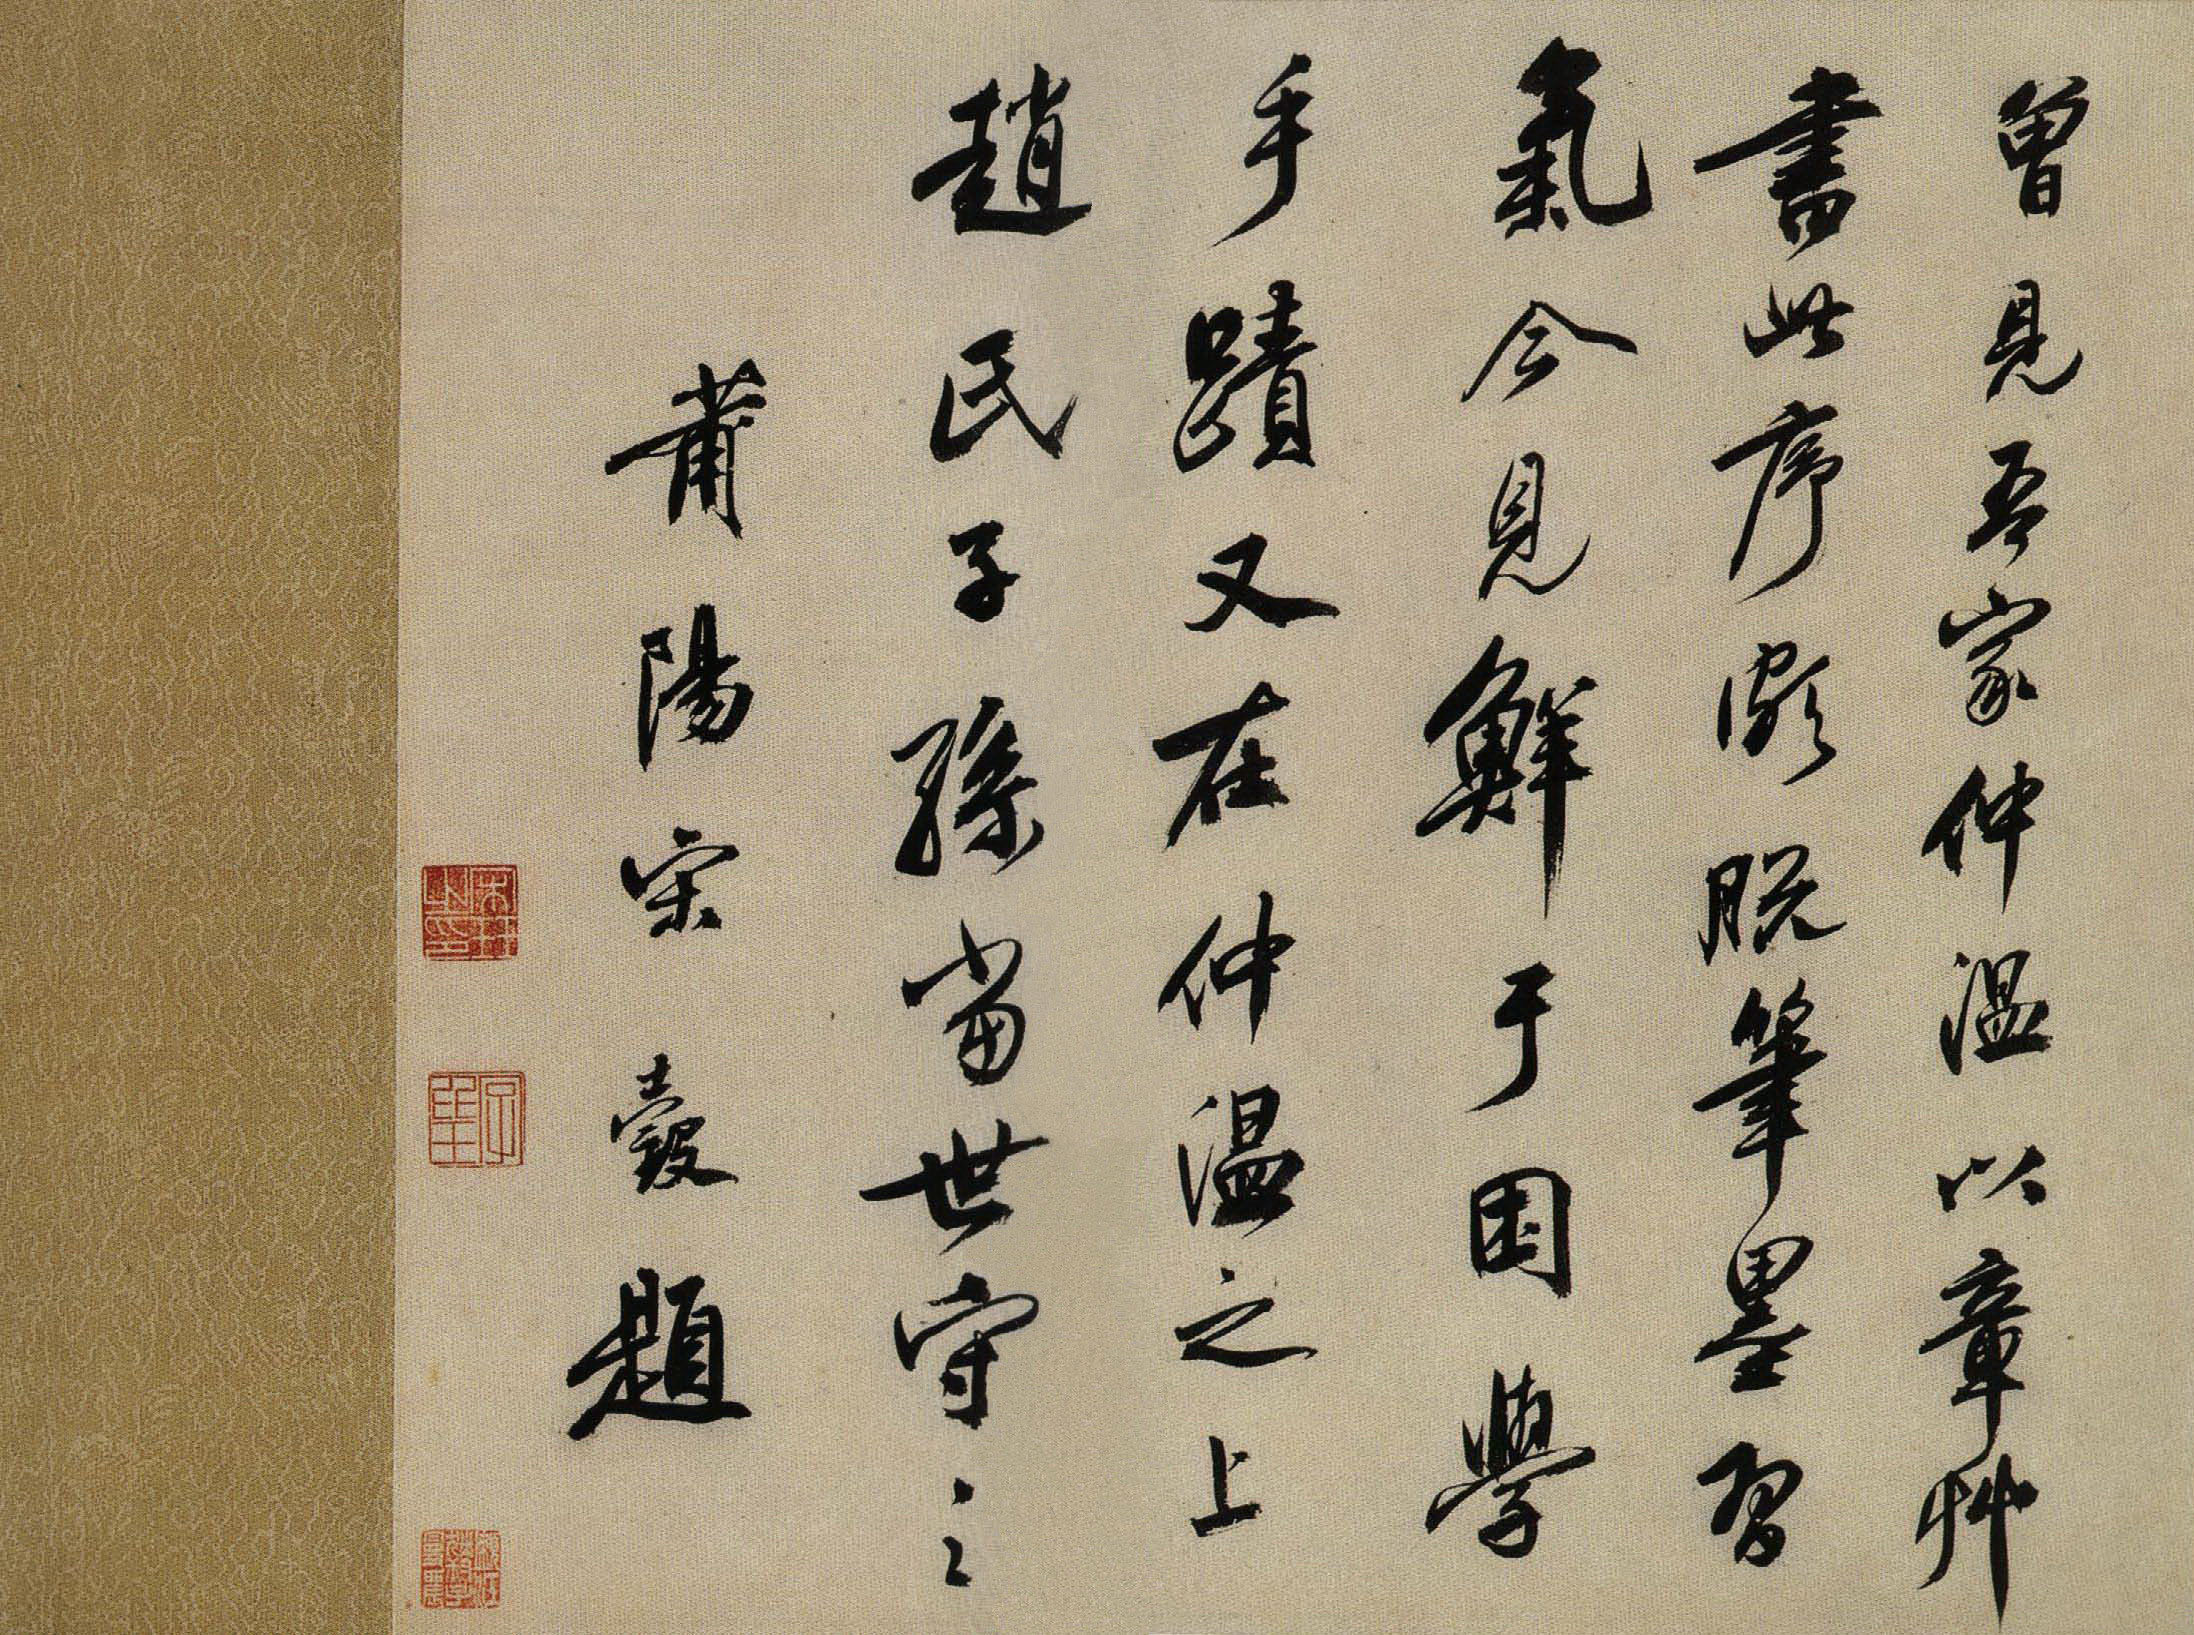 曾見吾家仲溫以章艸
書此序頗脫筆墨習
氣今見鮮于困學
手蹟又在仲溫之上
趙氏子孫當世守之
莆陽宋瑴題